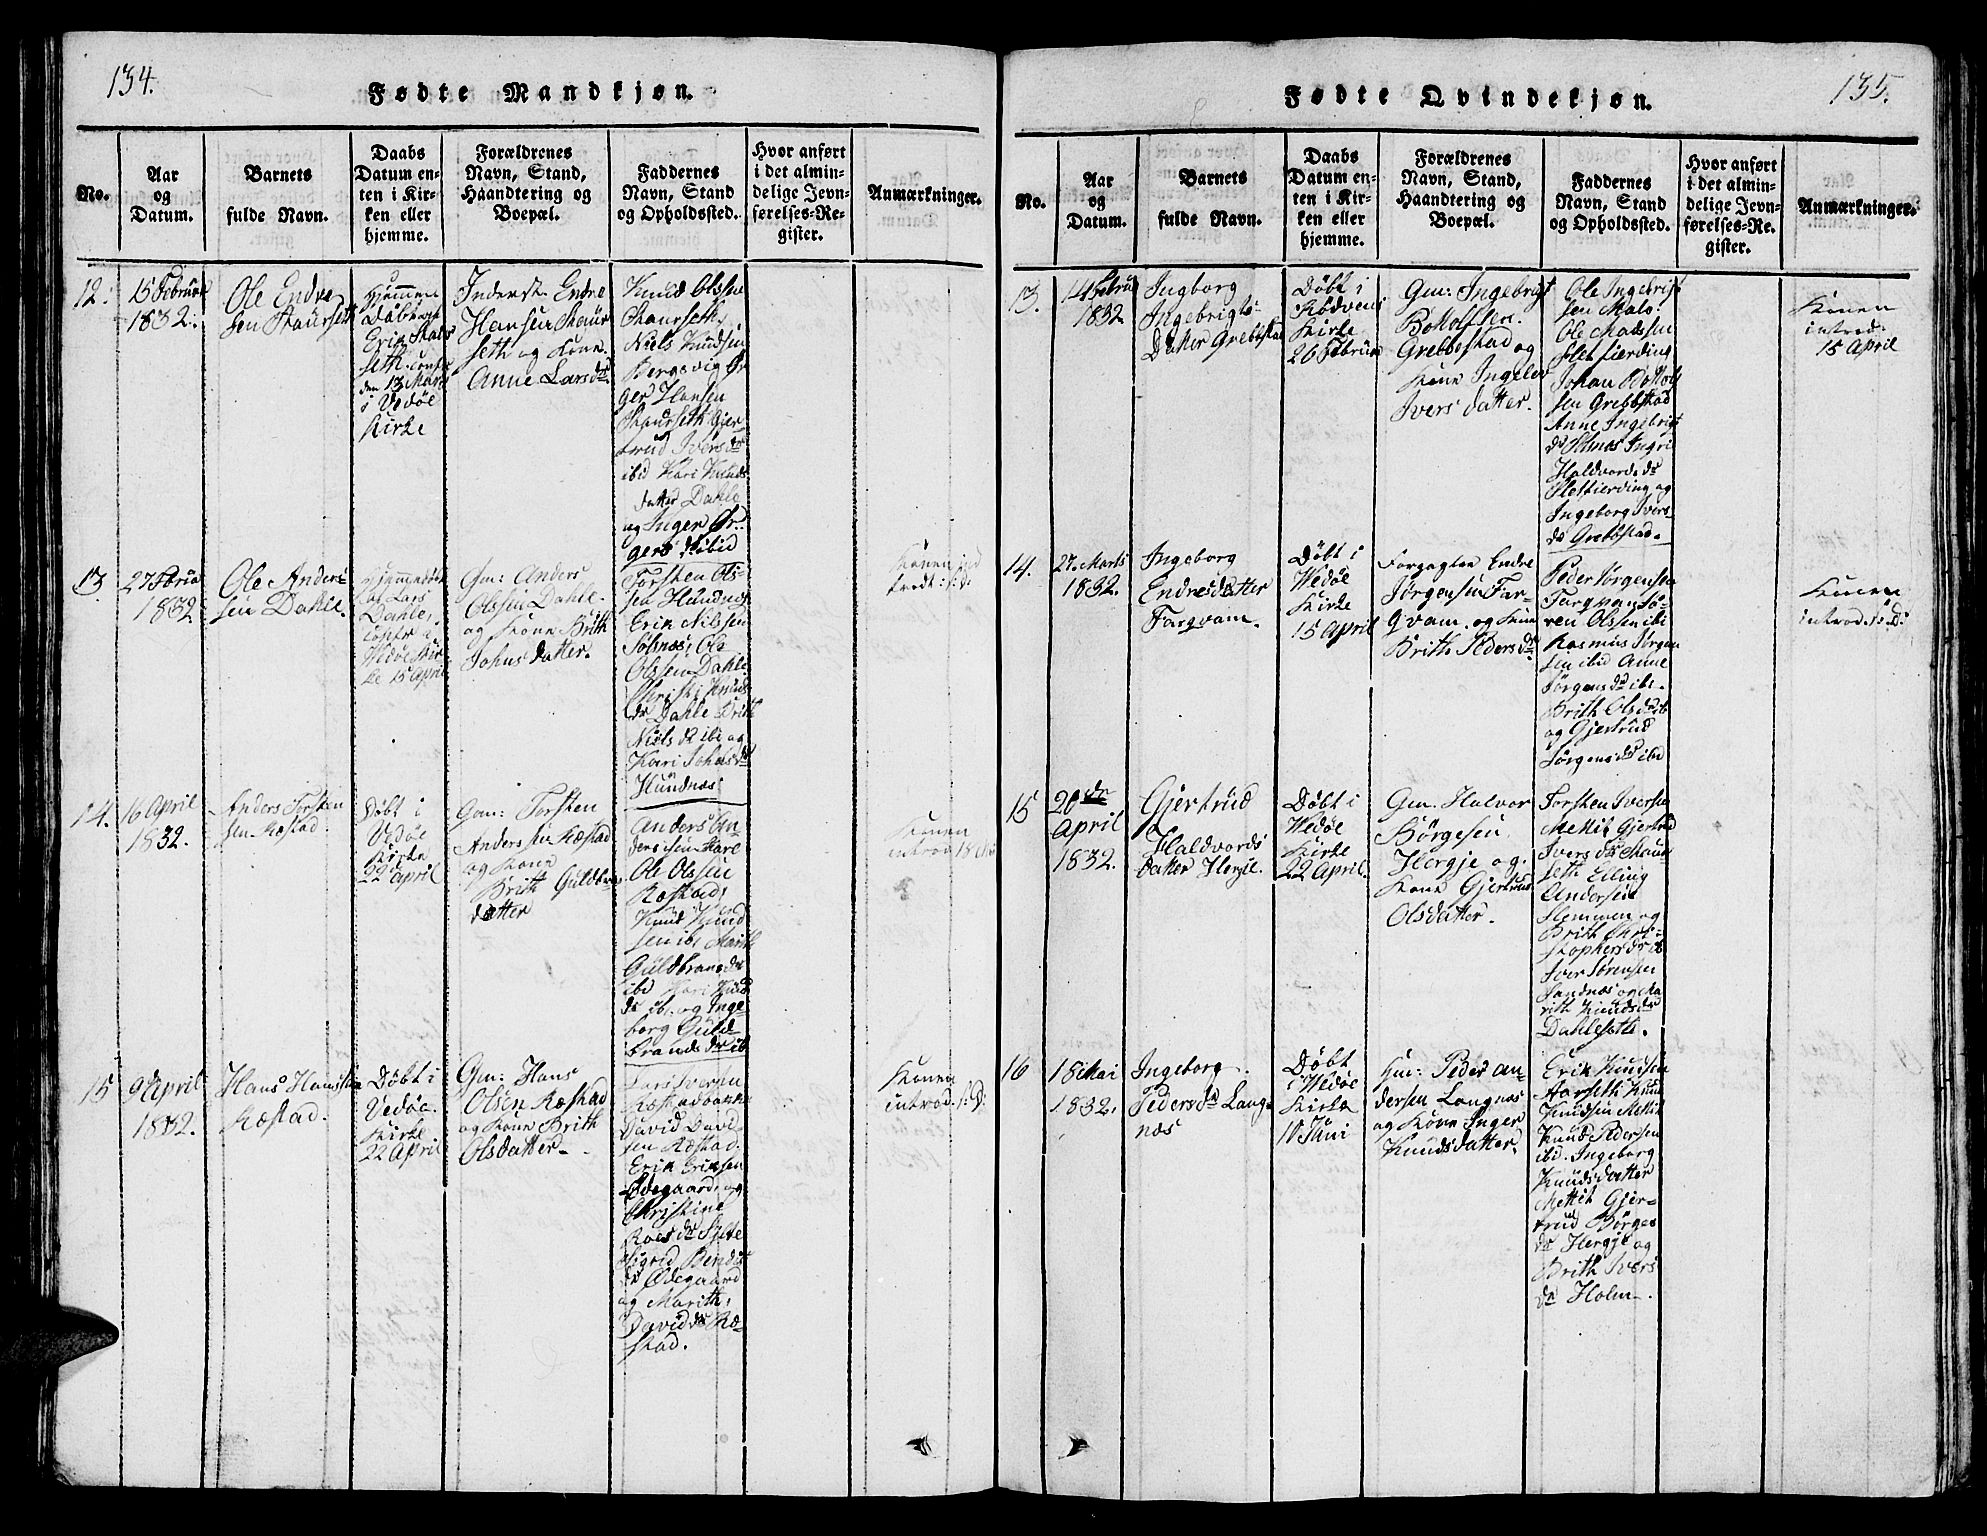 134.
Fødte Mandkjøn.
No.
Aar
og
Datum.
Barnets
fulde Navn.
Daabs
Datum en-
ten i Kir-
ken eller
hjemme.
Forældrenes
Navn, Stand,
Haandtering og
Boepæl.
Faddernes
Navn, Stand
og Opholdssted.
Hvor anført
i det almin-
delige Jevn-
førelses-Re-
gister.
Anmærkninger.
12.
15 Februar
1832.
Ole Endre
sen
Hjemme
Døbt af
Erik
seth
den 13 Mart
i Vedøe
Kirke
Inderst. Endre
Hansen
seth og Kone
Anne Larsdr
Knud Olssen
Niels Knudsen
Bergsvig Ør
ger Hansen
Gjer-
trud Ivers dr
ibid Kari Knuds
datter Dahle
og Inger Ør-
gers dr ibid
13.
27 Februa
1832
Ole Anders
sen Dahle.
Hjemmedøbt
af Lars
Dahle,
Vedøe Kir-
ke 15 April
Gm: Anders
Olssen Dahle
og Kone Brith
Johns datter.
Torsten Ols-
sen Hundnæs
Erik Nilssen
Sølsnæs, Ole
Olssen Dahle
Christi Knuds
dr Dahle Brith
Niels dr ibi og
Kari Johns dr
Hundnæs
Konen ind
trod: s: D:
14.
16 April
1832.
Anders Torsten
sen Ræstad.
Døbt i
Vedøe
Kirke
22 April
Gm: Torsten
Anderssen Ræstad
og Kone
Brith Guldbr.
datter
Anders An
dersen
Ole Olssen
Ræstad,
Knud Knud
sen ibi Marith
Guldbrands dr
ibid Kari Knud
dr ib. og Inge
borg Guld-
brands dr ib
Konen
introd 18
15
9 April
1832.
Hans Hansen
Ræstad.
Døbt i
Vedøe
Kirke
22 April
Gm: Hans
Olsen Ræstad
og Kone Brith
Olsdatter
Lars Iversen
David David
sen Ræstad.
Erik Eriksen
Ødegaard, og
Christine
Roes dr Sylte
Sigrid Bends
dr Ødegaard
og Marith,
David dr Ræ-
stad.
Konen
introd. s: D:
135.
Fødte Qvindekjøn.
No.
Aar
og
Datum.
Barnets
fulde Navn.
Daabs
Datum en-
ten i Kir-
ken eller
hjemme.
Forældrenes
Navn, Stand,
Haandtering og
Boepæl.
Faddernes
Navn, Stand
og Opholdssted.
Hvor anført
i det almin-
delige Jevn-
førelses-Re-
gister.
Anmærkninger.
13.
14 Febru
1832.
Ingborg
Ingebrigts
Datter Grebbstad
Døbt i
Rødvens
Kirke
26 Februar
Gm: Ingebrigt
Botolfsen
Grebbestad og
Kone Ingelev
Ivers datter.
Ole Ingebrigt
sen
Ole Madssen
Johan Botolf
sen Grebbstad
Anne Ingebrigt
dr Ingri
Haldvords dr
og
Ingeborg Ivers-
dr Grebbstad.
Konen
introd:
15 April
14.
27. Marts
1832.
Ingeborg
Endresdatter
Farqvam.
Døbt i
Wedøe
Kirke
15 April
Endre
Jørgensen Far-
qvam. og Kone
Brith Peders dr
Peder Jørgensen
Farqvam Sø-
ren Olssen ibi
Rasmus Jørgen
sen ibid Anne
Jørgens dr ibi.
Brith Ols dr ib
og Gjertrud
Jørgens dr ibid
Konen
introd. s: D:
15
20de
April
1832.
Gjertrud
Haldvords
datter Hergje.
Døbt i
Wedøe
Kirke
22 April.
Gm. Halvor
Børgesen
Hergje og
Kone Gjertrud
Olsdatter.
Torsten Iversen
Mettit Gjertrud
Ivers dr
seth Elling
Andersen
Hemmen og
Brith Chri-
stophers dr ib
Iver Sørensen
Sandnæs og Ma
rith Knuds dr
Dahlesette.
16
18 Mai
1832.
Ingeborg
Peders dr Lang-
næs
Døbt
i Wedøe
Kirke
10 Juni
Gm: Peder An-
dersen Langnæs
og Kone Inger
Knudsdatter.
Erik Knudsen
Aarseth Knud
Knudsen Mettit
Knud Pedersen
ibid. Ingeborg
Knudsdatter
Mettit Gjer-
trud Børges
dr Hergje og
Brith Ivers
dr Holm.